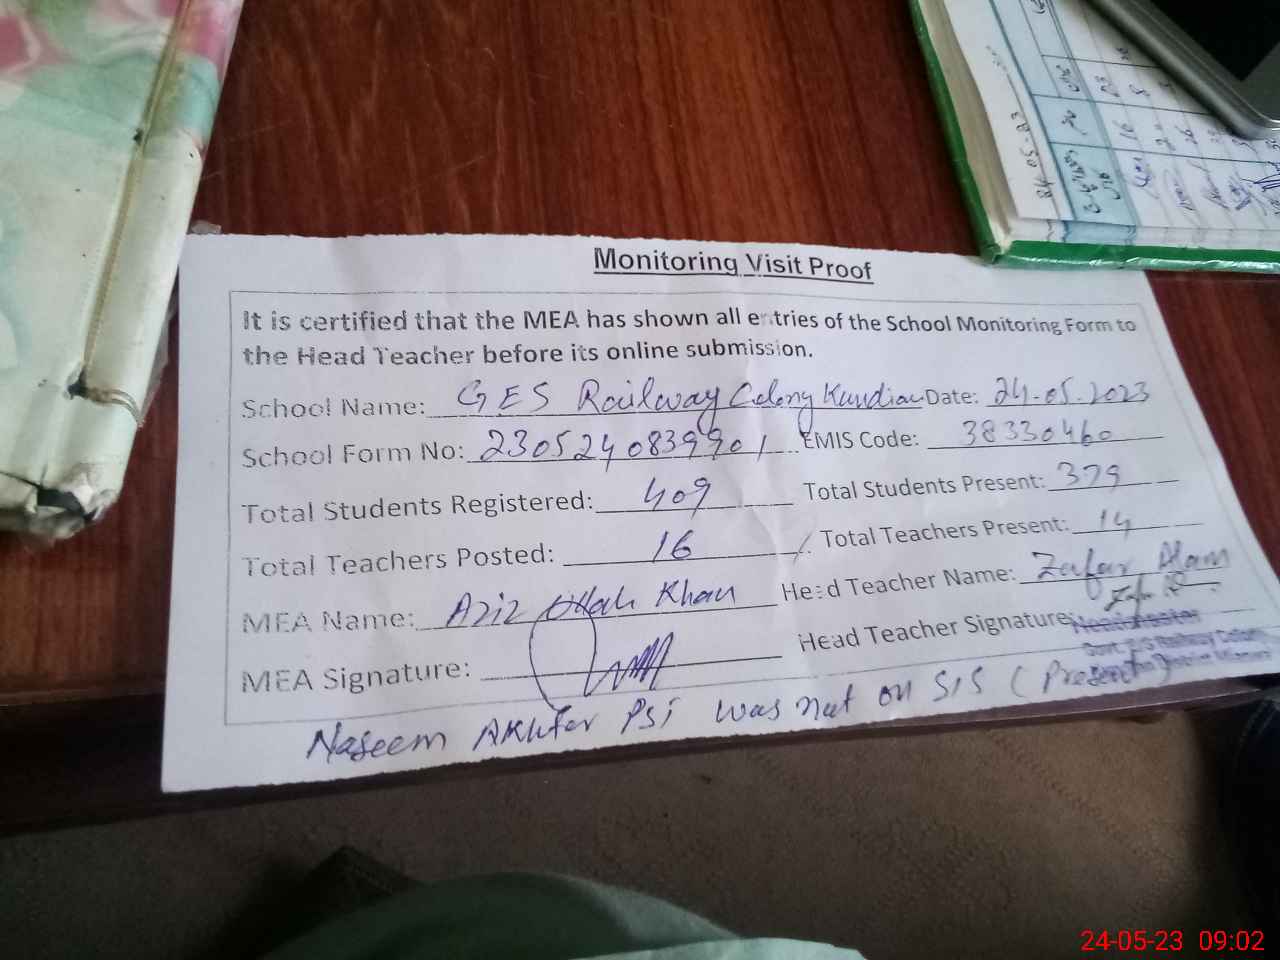 Monitoring Visit Proof
It is certified that the MEA has shown all entries of the School Monitoring Form to
the Head Teacher before its online submission.
School Name: GES Railway Colony Kundian Date: 24.05.2023
School Form No: 2305240839901 EMIS Code: 38330460
Total Students Registered: 409 Total Students Present: 379
Total Teachers Posted: 16 Total Teachers Present: 14
MEA Name: Aziz Ullah Khan Head Teacher Name: Zafar Alam
MEA Signature: Head Teacher Signature:
Headmaster
Govt. Railway Colony
Naseem Akhter PSI was not on SIS (Present)
24-05-23
24-05-23 09:02